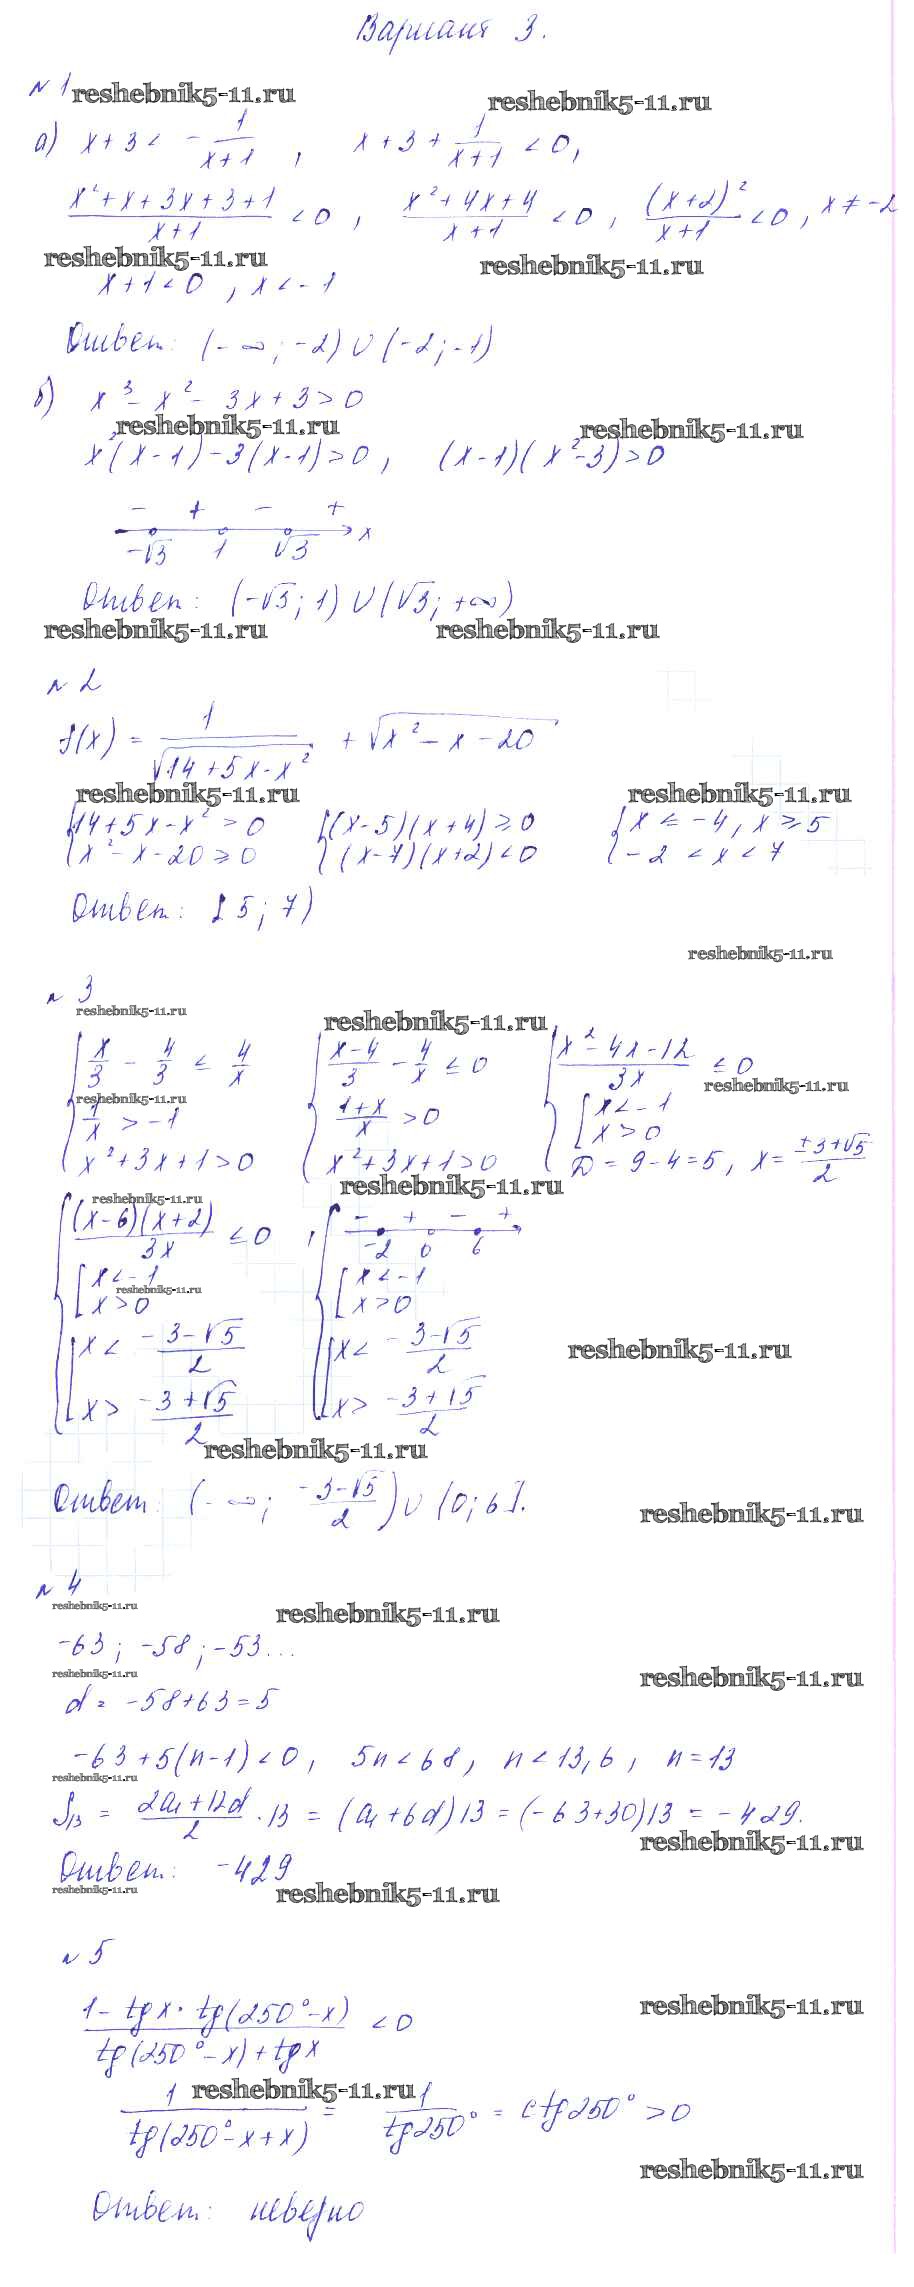 Вариант 3.
№ 1 reshebnik5-11.ru reshebnik5-11.ru
а) x + 3 < - 1/(x+1) , x + 3 + 1/(x+1) < 0,
(x²+x+3x+3+1)/(x+1) < 0 , (x²+4x+4)/(x+1) < 0 , (x+2)²/(x+1) < 0 , x ≠ -2
reshebnik5-11.ru reshebnik5-11.ru
x+1 < 0 , x < -1
Ответ: (-∞; -2) ∪ (-2; -1)
б) x³ - x² - 3x + 3 > 0
reshebnik5-11.ru reshebnik5-11.ru
x²(x-1) - 3(x-1) > 0 , (x-1)(x²-3) > 0
- + - +
-√3 1 √3 x
Ответ: (-√3; 1) ∪ (√3; +∞)
reshebnik5-11.ru reshebnik5-11.ru
№ 2
f(x) = 1/√(14+5x-x²) + √(x²-x-20)
reshebnik5-11.ru reshebnik5-11.ru
{14+5x-x² > 0 {(x-5)(x+4) ≥ 0 {x ≤ -4, x ≥ 5
{x²-x-20 ≥ 0 {(x-7)(x+2) < 0 {-2 < x < 7
Ответ: [5; 7)
reshebnik5-11.ru
№ 3
reshebnik5-11.ru reshebnik5-11.ru
x/3 - 4/3 ≤ 4/x (x-4)/3 - 4/x ≤ 0 (x²-4x-12)/3x ≤ 0
reshebnik5-11.ru reshebnik5-11.ru
1/x > -1 (1+x)/x > 0 [x < -1
x > 0
x²+3x+1 > 0 x²+3x+1 > 0 D = 9-4 = 5, x = (±3+√5)/2
reshebnik5-11.ru reshebnik5-11.ru
(x-6)(x+2)/3x ≤ 0 , - + - +
-2 0 6
[x < -1 [x < -1
reshebnik5-11.ru
x > 0 x > 0
[x < (-3-√5)/2 [x < (-3-√5)/2
reshebnik5-11.ru
x > (-3+√5)/2 x > (-3+√5)/2
reshebnik5-11.ru
Ответ: (-∞; (-3-√5)/2) ∪ (0; 6].
reshebnik5-11.ru
№ 4
reshebnik5-11.ru reshebnik5-11.ru
-63; -58; -53...
reshebnik5-11.ru reshebnik5-11.ru
d = -58+63 = 5
-63+5(n-1) < 0, 5n < 68, n < 13,6, n = 13
reshebnik5-11.ru
S₁₃ = (2a₁+12d)/2 · 13 = (a₁+6d)13 = (-63+30)13 = -429.
reshebnik5-11.ru
Ответ: -429
reshebnik5-11.ru reshebnik5-11.ru
№ 5
(1 - tg x · tg(250°-x))/(tg(250°-x) + tg x) < 0
reshebnik5-11.ru
reshebnik5-11.ru
1/tg(250°-x+x) = 1/tg250° = ctg250° > 0
reshebnik5-11.ru
Ответ: неверно